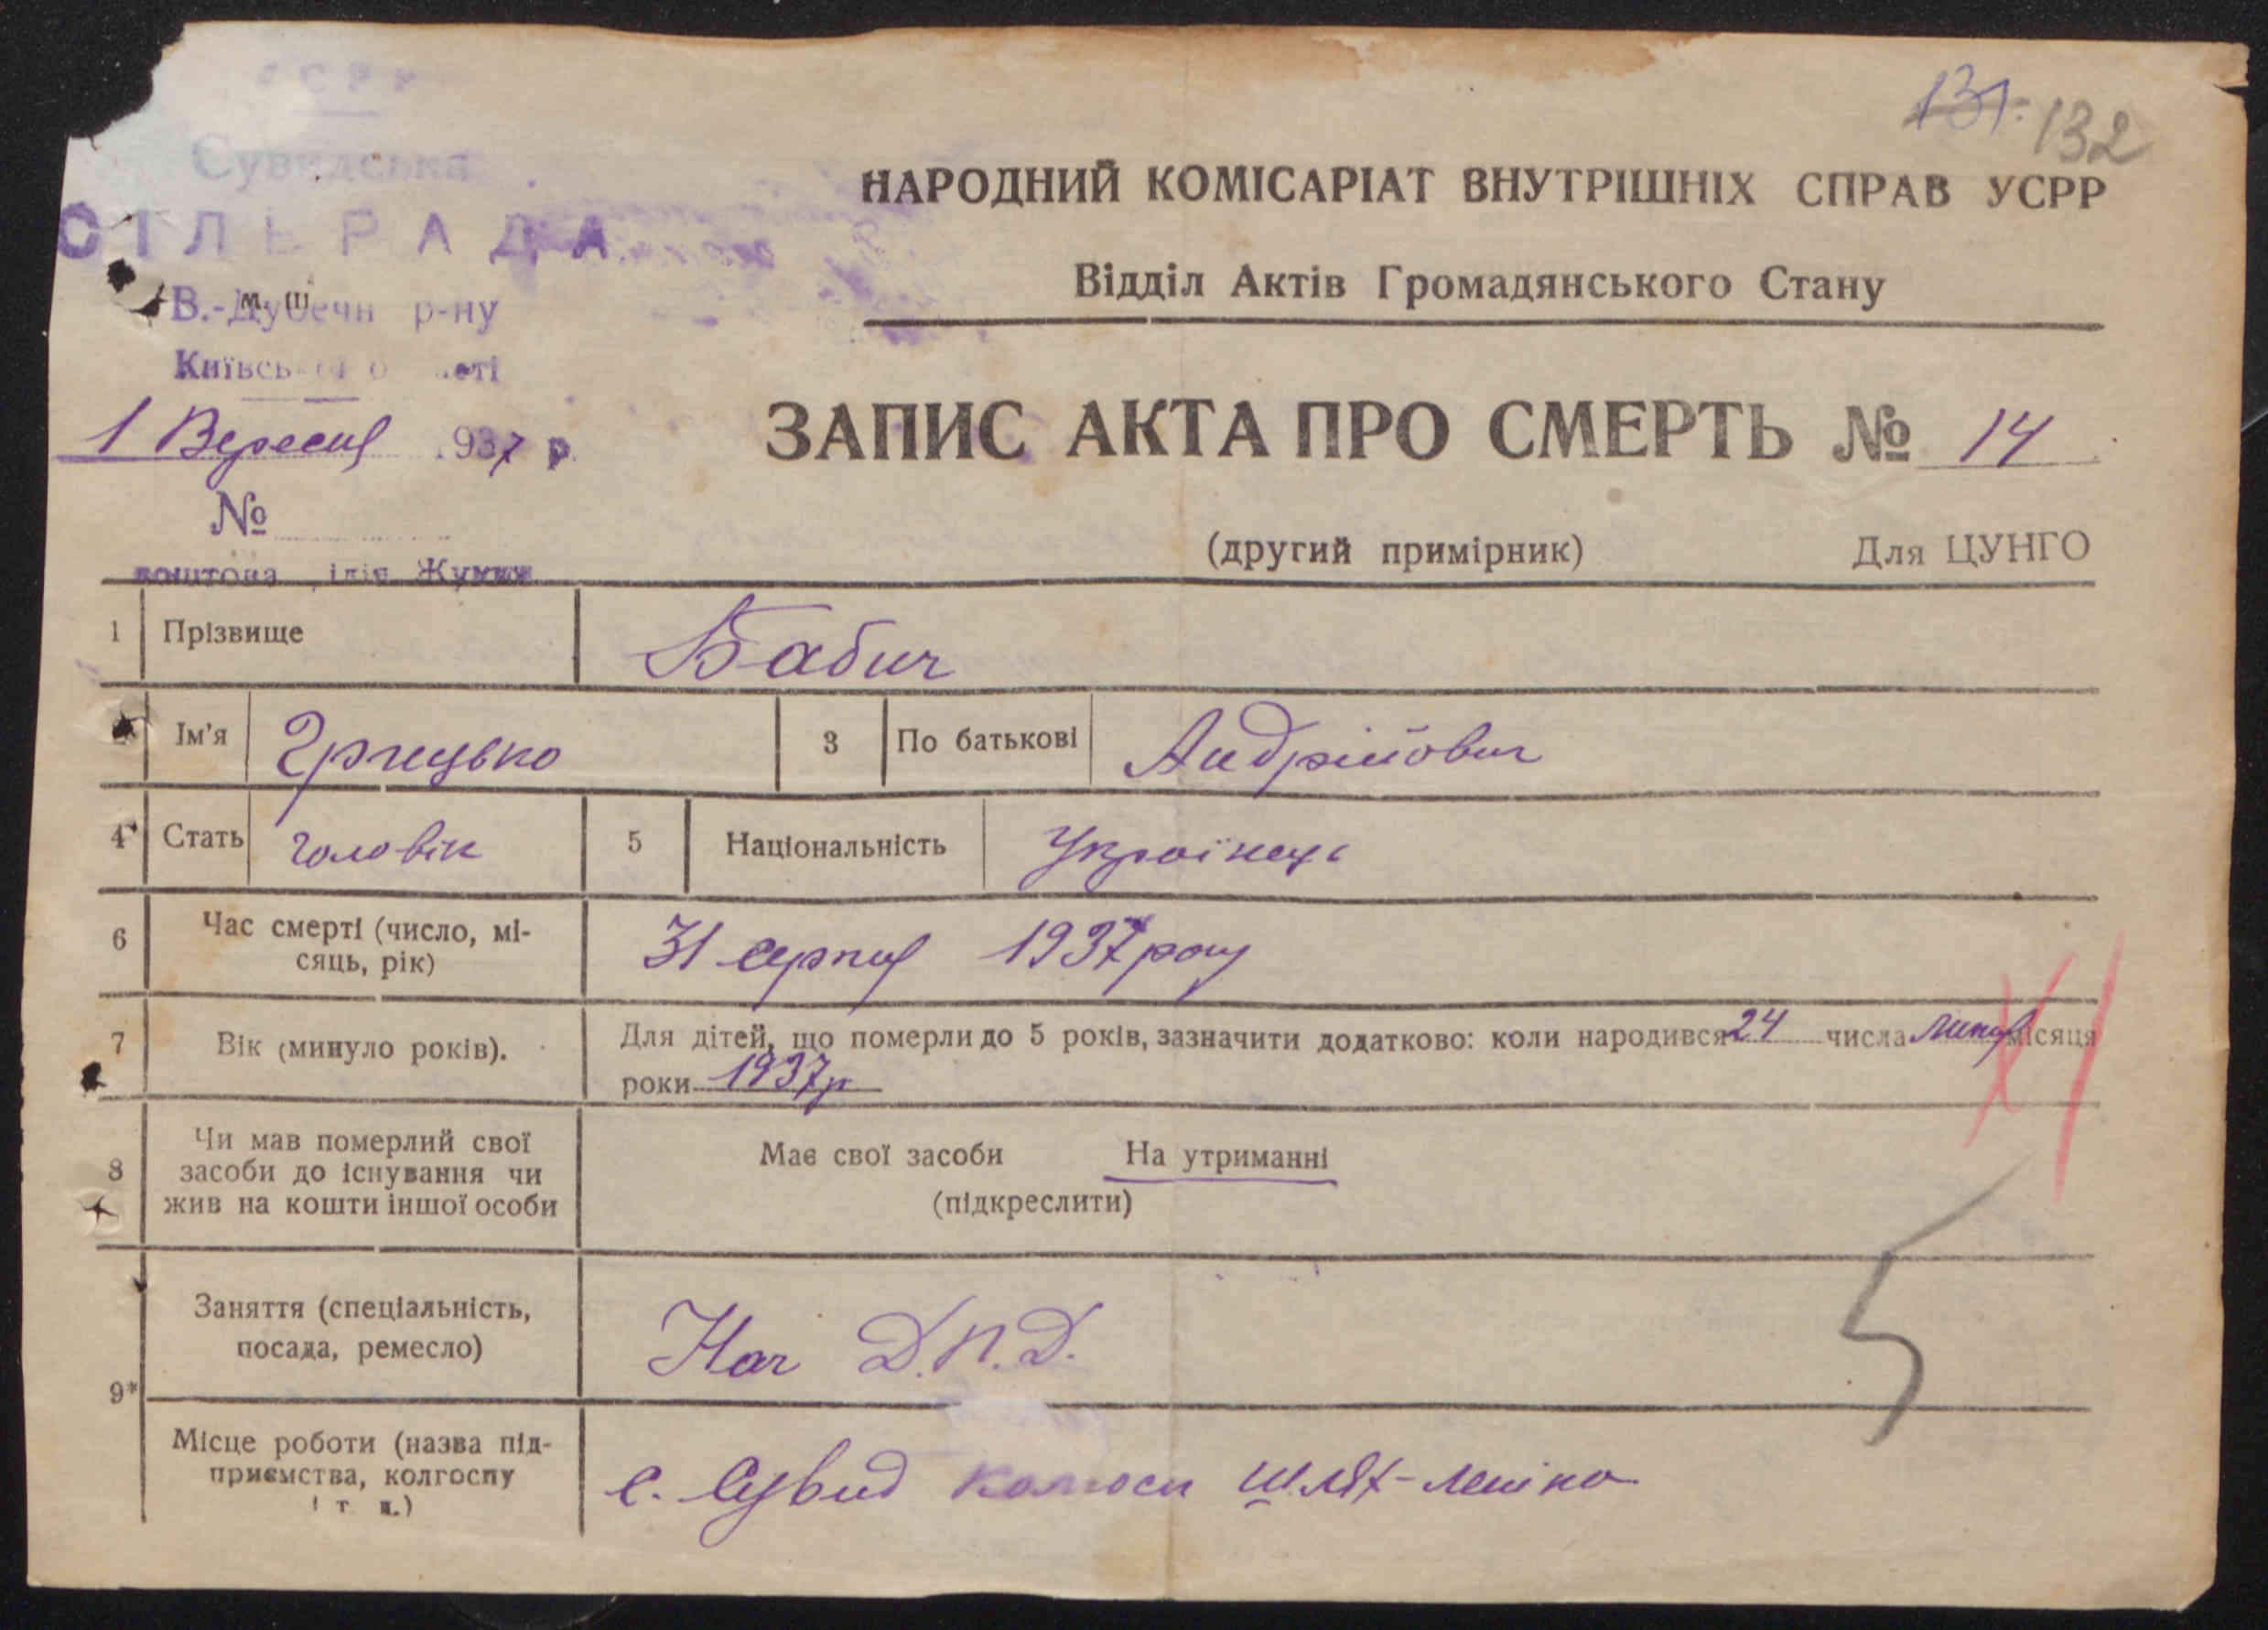 УСРР
131. 132
Сувидська
СІЛЬРАДА
В.-Дубечн р-ну
Київської області
1 Вересня 1937 р.
№
поштова
НАРОДНИЙ КОМІСАРІАТ ВНУТРІШНІХ СПРАВ УСРР
Відділ Актів Громадянського Стану
ЗАПИС АКТА ПРО СМЕРТЬ № 14
(другий примірник) Для ЦУНГО
1 Прізвище Бабич
2 Ім'я Грицько 3 По батькові Андрійович
4 Стать Чоловік 5 Національність Українець
6 Час смерті (число, мі-
сяць, рік) 31 серпня 1937 року
7 Вік (минуло років). Для дітей, що померли до 5 років, зазначити додатково: коли народився 24 числа Липня місяця
роки 1937 р
8 Чи мав померлий свої
засоби до існування чи
жив на кошти іншої особи
Має свої засоби На утриманні
(підкреслити)
5
9* Заняття (спеціальність,
посада, ремесло)
Д.П.Д.
Місце роботи (назва під-
приємства, колгоспу
і т. п.)
с. Сувид Шлях-Леніна